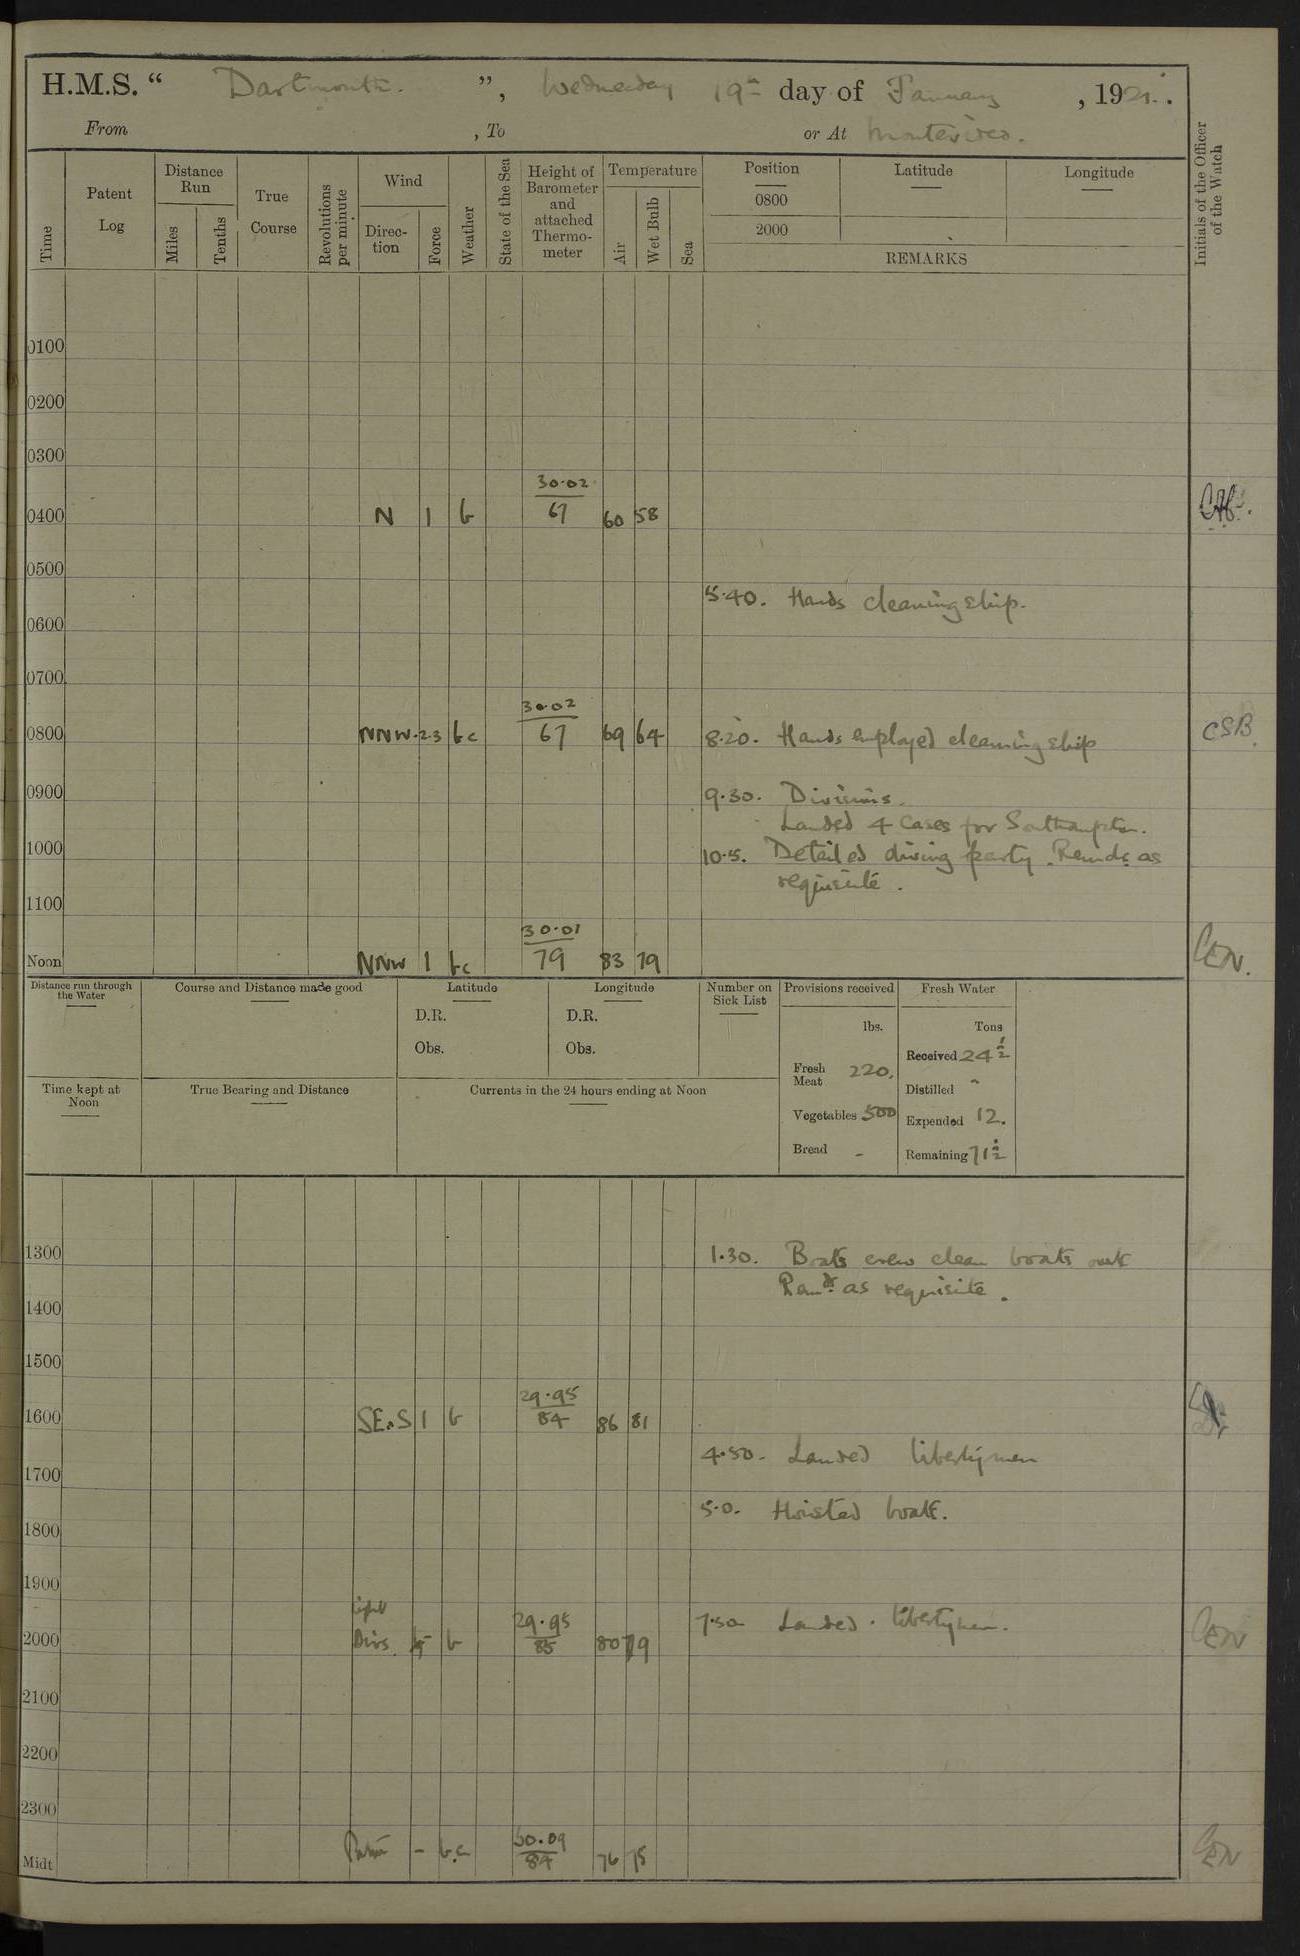 H.M.S. “ Dartmouth. ”, Wednesday 19th day of January , 1921.
From , To or At Montevideo.
Time
Patent Log
Distance Run
Miles
Tenths
True Course
Revolutions per minute
Wind
Direction
Force
Weather
State of the Sea
Height of Barometer and attached Thermometer
Temperature
Air
Wet Bulb
Sea
Position
0800
2000
Latitude
Longitude
REMARKS
Initials of the Officer of the Watch
0100
0200
0300
30.02
0400 N 1 b 67 60 58
0500
5.40. Hands cleaning ship.
0600
0700
30.02
0800 NNW 2.3 bc 67 69 64 8.20. Hands employed cleaning ship CSB
0900 9.30. Divisions.
Landed 4 cases for Southampton.
1000 10.5. Detailed diving party. Remdr as
requisite.
1100
30.01
Noon NNW 1 bc 79 83 79 CEN.
Distance run through the Water
Course and Distance made good
Latitude
D.R.
Obs.
Longitude
D.R.
Obs.
Number on Sick List
Provisions received
lbs.
Fresh Meat 220.
Vegetables 500
Bread -
Fresh Water
Tons
Received 24 1/2
Distilled -
Expended 12.
Remaining 71 1/2
Time kept at Noon
True Bearing and Distance
Currents in the 24 hours ending at Noon
1300 1.30. Boats crew clean boats
Remdr as requisite.
1400
1500
29.95
1600 SE.S 1 b 84 86 81
4.50. Landed libertymen
1700
5.0. Hoisted boats.
1800
1900
light 29.95 7.50 Landed libertymen.
2000 Airs. b 85 80 79 CEN
2100
2200
2300
30.09
Midt - b.c. 84 76 75 CEN